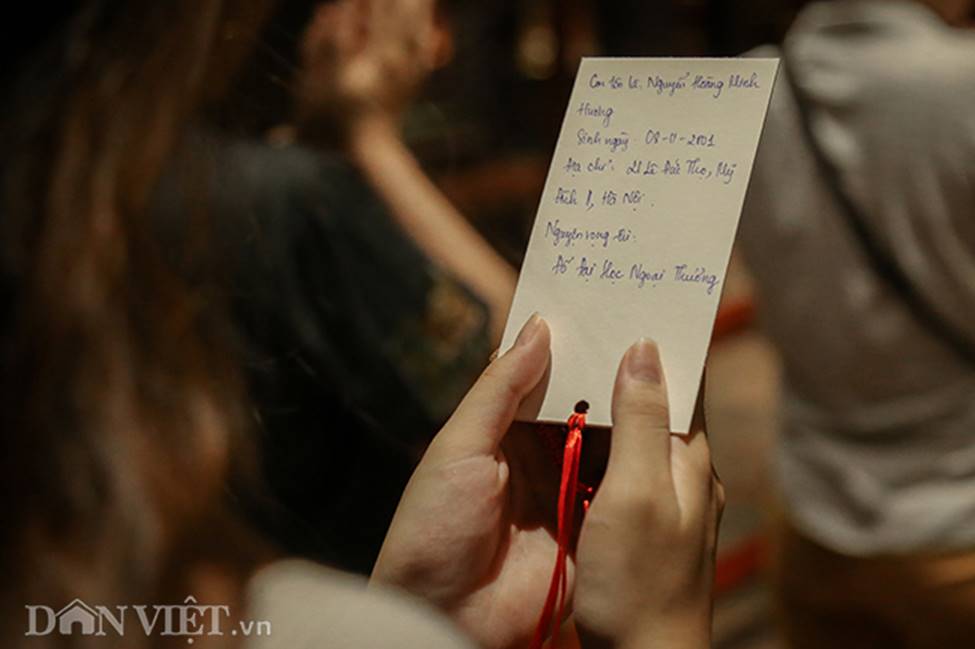 Con tên là: Nguyễn Hoàng Minh
Hương
Sinh ngày: 08-11-2001
Địa chỉ: 21 Lê Đức Thọ, Mỹ
Đình II, Hà Nội.
Nguyện vọng
Đỗ Đại Học Ngoại Thương
DÂN VIỆT.vn